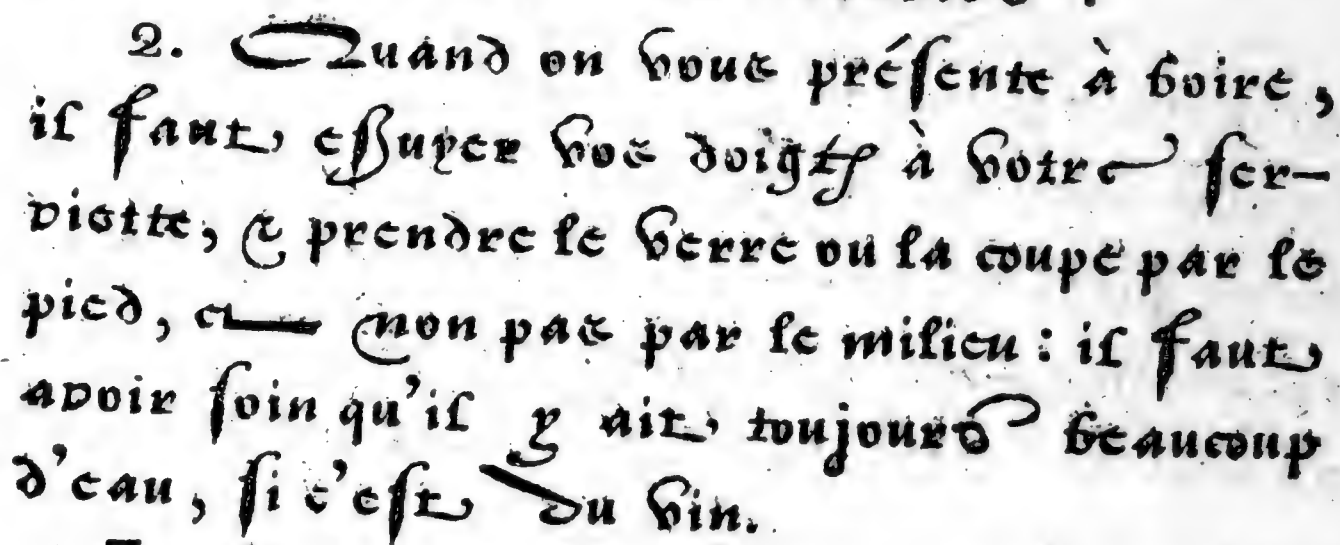 2. Quand on vous préſente à boire,
il faut eſſuyer vos doigts à votre ſer-
viette, & prendre le verre ou la coupe par le
pied, et non pas par le milieu : il faut
avoir ſoin qu'il y ait toujours beaucoup
d'eau, ſi c'eſt du vin.